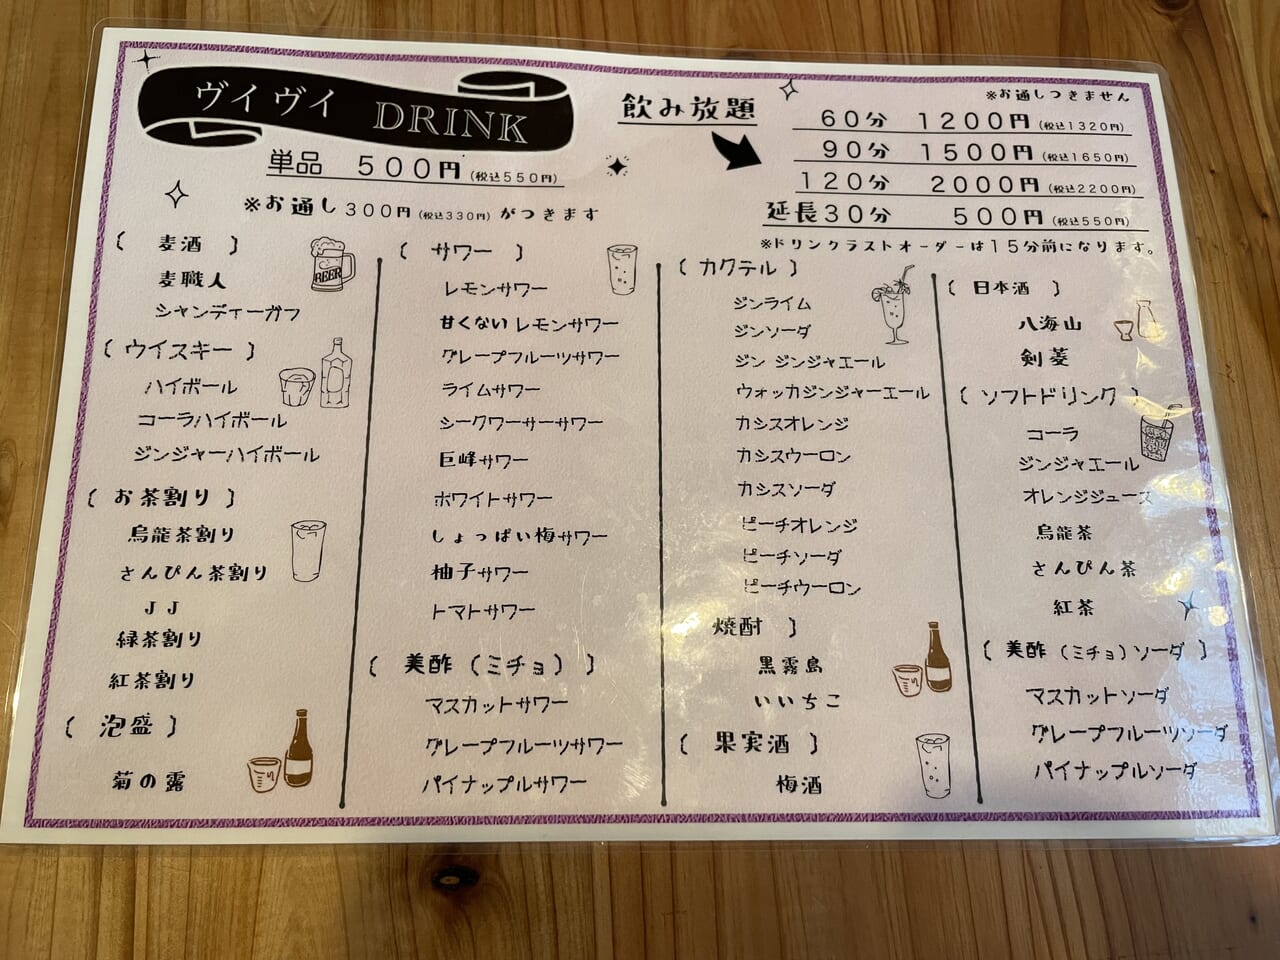 ヴイヴイ DRINK
単品 500円(税込550円)
※お通し300円(税込330円)がつきます
飲み放題
※お通しつきません
60分 1200円(税込1320円)
90分 1500円(税込1650円)
120分 2000円(税込2200円)
延長30分 500円(税込550円)
※ドリンクラストオーダーは15分前になります。
( 麦酒 )
麦職人
シャンディーガフ
(ウイスキー )
ハイボール
コーラハイボール
ジンジャーハイボール
( お茶割り )
烏龍茶割り
さんぴん茶割り
JJ
緑茶割り
紅茶割り
( 泡盛 )
菊の露
( サワー )
レモンサワー
甘くないレモンサワー
グレープフルーツサワー
ライムサワー
シークワーサーサワー
巨峰サワー
ホワイトサワー
しょっぱい梅サワー
柚子サワー
トマトサワー
( 美酢(ミチョ) )
マスカットサワー
グレープフルーツサワー
パイナップルサワー
( カクテル )
ジンライム
ジンソーダ
ジン ジンジャエール
ウォッカジンジャーエール
カシスオレンジ
カシスウーロン
カシスソーダ
ピーチオレンジ
ピーチソーダ
ピーチウーロン
焼酎 )
黒霧島
いいちこ
( 果実酒 )
梅酒
( 日本酒 )
八海山
剣菱
( ソフトドリンク )
コーラ
ジンジャエール
オレンジジュース
烏龍茶
さんぴん茶
紅茶
( 美酢(ミチョ)ソーダ )
マスカットソーダ
グレープフルーツソーダ
パイナップルソーダ
BEER